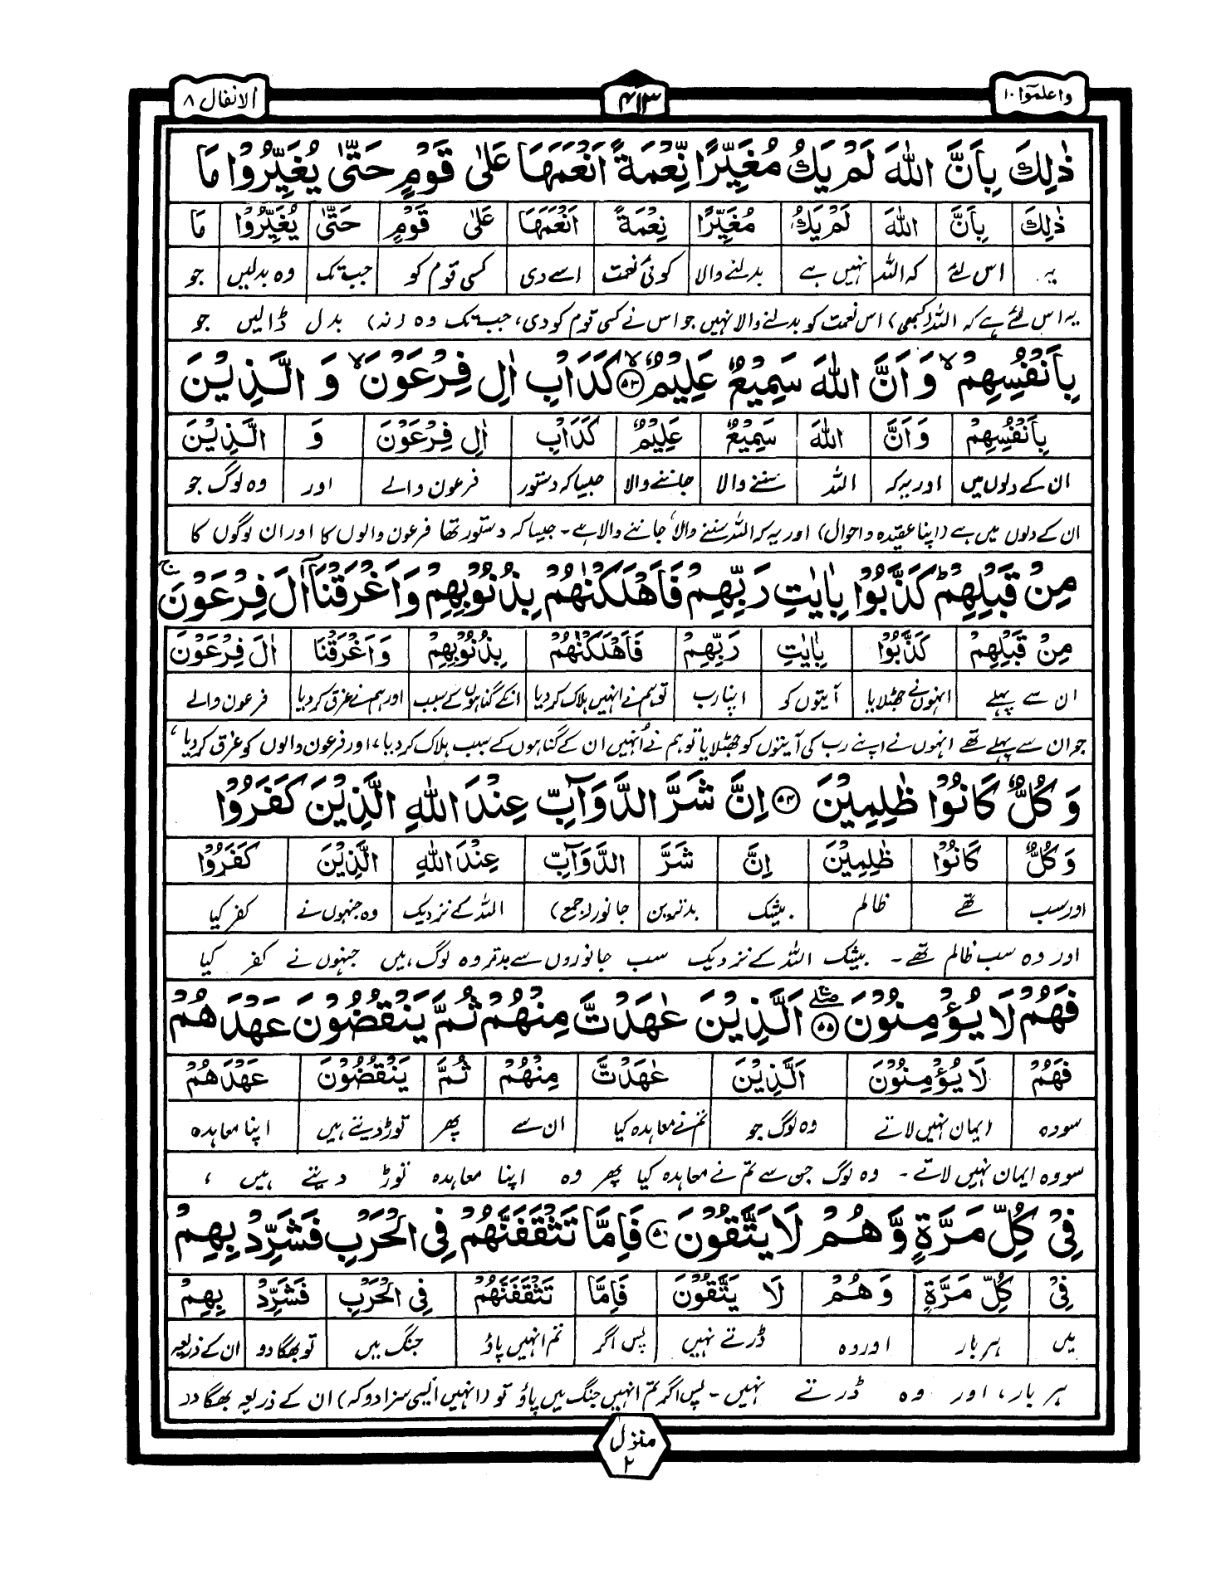 واعلموا ١٠
۴۱۳
الانفال ٨
ذٰلِكَ بِاَنَّ اللّٰهَ لَمْ يَكُ مُغَيِّرًا نِّعْمَةً اَنْعَمَهَا عَلٰى قَوْمٍ حَتّٰى يُغَيِّرُوْا مَا
ذٰلِكَ بِاَنَّ اللّٰهَ لَمْ يَكُ مُغَيِّرًا نِعْمَةً اَنْعَمَهَا عَلٰى قَوْمٍ حَتّٰى يُغَيِّرُوْا مَا
یہ اس لئے کہ اللہ نہیں ہے بدلنے والا کوئی نعمت اسے دی کسی قوم کو جب تک وہ بدلیں جو
یہ اس لئے ہے کہ اللہ (کبھی) اس نعمت کو بدلنے والا نہیں جو اس نے کسی قوم کو دی، جب تک وہ (نہ) بدل ڈالیں جو
بِاَنْفُسِهِمْ ۙ وَ اَنَّ اللّٰهَ سَمِيْعٌ عَلِيْمٌ ۙ‏﴿۵۳﴾ كَدَاْبِ اٰلِ فِرْعَوْنَ ۙ وَ الَّذِيْنَ
بِاَنْفُسِهِمْ وَ اَنَّ اللّٰهَ سَمِيْعٌ عَلِيْمٌ كَدَاْبِ اٰلِ فِرْعَوْنَ وَ الَّذِيْنَ
ان کے دلوں میں اور یہ کہ اللہ سننے والا جاننے والا جیسا کہ دستور فرعون والے اور وہ لوگ جو
ان کے دلوں میں ہے (اپنا عقیدہ و احوال) اور یہ کہ اللہ سننے والا، جاننے والا ہے۔ جیسا کہ دستور تھا فرعون والوں کا اور ان لوگوں کا
مِنْ قَبْلِهِمْ ؕ كَذَّبُوْا بِاٰيٰتِ رَبِّهِمْ فَاَهْلَكْنٰهُمْ بِذُنُوْبِهِمْ وَ اَغْرَقْنَاۤ اٰلَ فِرْعَوْنَ ۚ
مِنْ قَبْلِهِمْ كَذَّبُوْا بِاٰيٰتِ رَبِّهِمْ فَاَهْلَكْنٰهُمْ بِذُنُوْبِهِمْ وَ اَغْرَقْنَا اٰلَ فِرْعَوْنَ
ان سے پہلے انہوں نے جھٹلایا آیتوں کو اپنا رب تو ہم نے انہیں ہلاک کر دیا انکے گناہوں کے سبب اور ہم نے غرق کر دیا فرعون والے
جو ان سے پہلے تھے انہوں نے اپنے رب کی آیتوں کو جھٹلایا تو ہم نے اُنہیں ان کے گناہوں کے سبب ہلاک کر دیا، اور فرعون والوں کو غرق کر دیا،
وَ كُلٌّ كَانُوْا ظٰلِمِيْنَ ﴿۵۴﴾ اِنَّ شَرَّ الدَّوَآبِّ عِنْدَ اللّٰهِ الَّذِيْنَ كَفَرُوْا
وَ كُلٌّ كَانُوْا ظٰلِمِيْنَ اِنَّ شَرَّ الدَّوَآبِّ عِنْدَ اللّٰهِ الَّذِيْنَ كَفَرُوْا
اور سب تھے ظالم بیشک بدترین جانور (جمع) اللہ کے نزدیک وہ جنہوں نے کفر کیا
اور وہ سب ظالم تھے۔ بیشک اللہ کے نزدیک سب جانوروں سے بدتر وہ لوگ ہیں جنہوں نے کفر کیا
فَهُمْ لَا يُؤْمِنُوْنَ ﴿۵۵﴾ۖۚ اَلَّذِيْنَ عٰهَدْتَّ مِنْهُمْ ثُمَّ يَنْقُضُوْنَ عَهْدَهُمْ
فَهُمْ لَا يُؤْمِنُوْنَ اَلَّذِيْنَ عٰهَدْتَّ مِنْهُمْ ثُمَّ يَنْقُضُوْنَ عَهْدَهُمْ
سو وہ ایمان نہیں لاتے وہ لوگ جو تم نے معاہدہ کیا ان سے پھر توڑ دیتے ہیں اپنا معاہدہ
سو وہ ایمان نہیں لاتے۔ وہ لوگ جن سے تم نے معاہدہ کیا پھر وہ اپنا معاہدہ توڑ دیتے ہیں ،
فِيْ كُلِّ مَرَّةٍ وَّ هُمْ لَا يَتَّقُوْنَ ﴿۵۶﴾ فَاِمَّا تَثْقَفَنَّهُمْ فِي الْحَرْبِ فَشَرِّدْ بِهِمْ
فِيْ كُلِّ مَرَّةٍ وَ هُمْ لَا يَتَّقُوْنَ فَاِمَّا تَثْقَفَنَّهُمْ فِي الْحَرْبِ فَشَرِّدْ بِهِمْ
میں ہر بار اور وہ ڈرتے نہیں پس اگر تم انہیں پاؤ جنگ میں تو بھگا دو ان کے ذریعہ
ہر بار، اور وہ ڈرتے نہیں۔ پس اگر تم انہیں جنگ میں پاؤ تو (انہیں ایسی سزا دو کہ) ان کے ذریعہ بھگا دو
منزل ٢